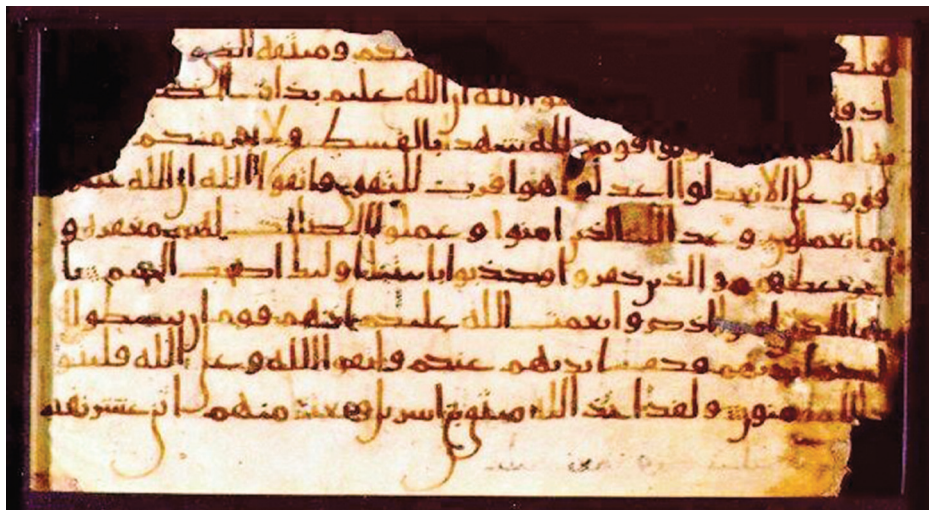 يكم وميثقه الذي
اذ قلتم قوا الله ان الله عليم بذات الصد
يها الذين كونوا قومين لله شهدا بالقسط ولا يجرمنكم
قوم على الا تعدلوا اعدلوا هو اقرب للتقوى واتقوا الله ان الله خبير
بما تعملون وعد الله الذين امنوا وعملوا الصلحت لهم مغفرة و
اجر عظيم والذين كفروا وكذبوا بايتنا اولئك اصحب الجحيم يا
يها الذين اذكروا نعمت الله عليكم اذ هم قوم ان يبسطوا
اليكم ايديهم فكف ايديهم عنكم واتقوا الله وعلى الله فليتو
كل المومنون ولقد اخذ الله ميثق بني اسريل وبعثنا منهم اثني عشر نقيبا